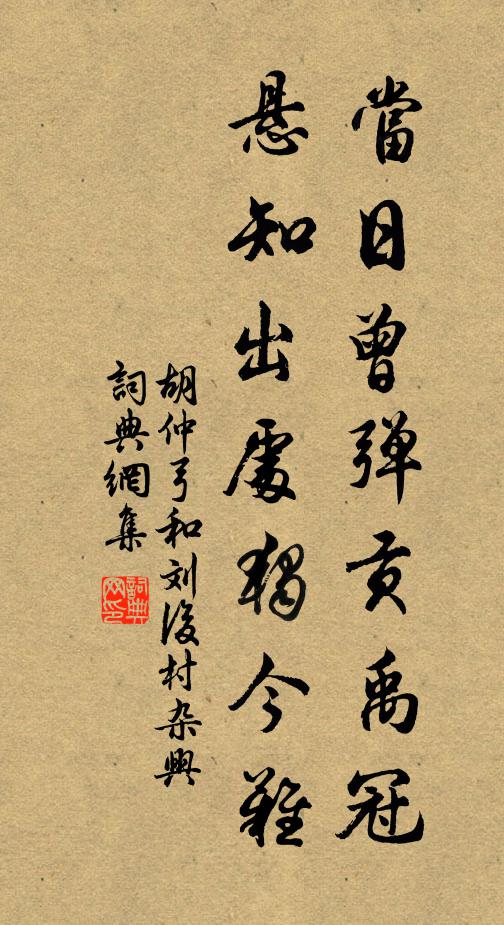 當日曾弹贡禹冠
悬知出處獨今難
胡仲弓和刘後村杂興
詞典網集
詞典網印